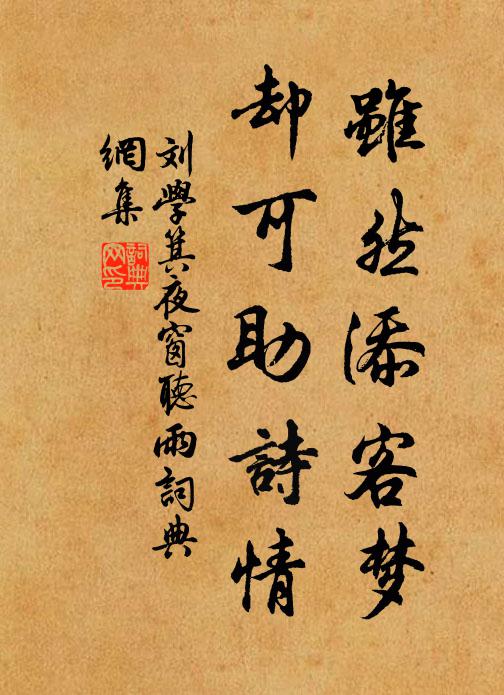 雖然添客梦
却可助詩情
刘學箕夜窗聽雨詞典
網集
詞典
网印